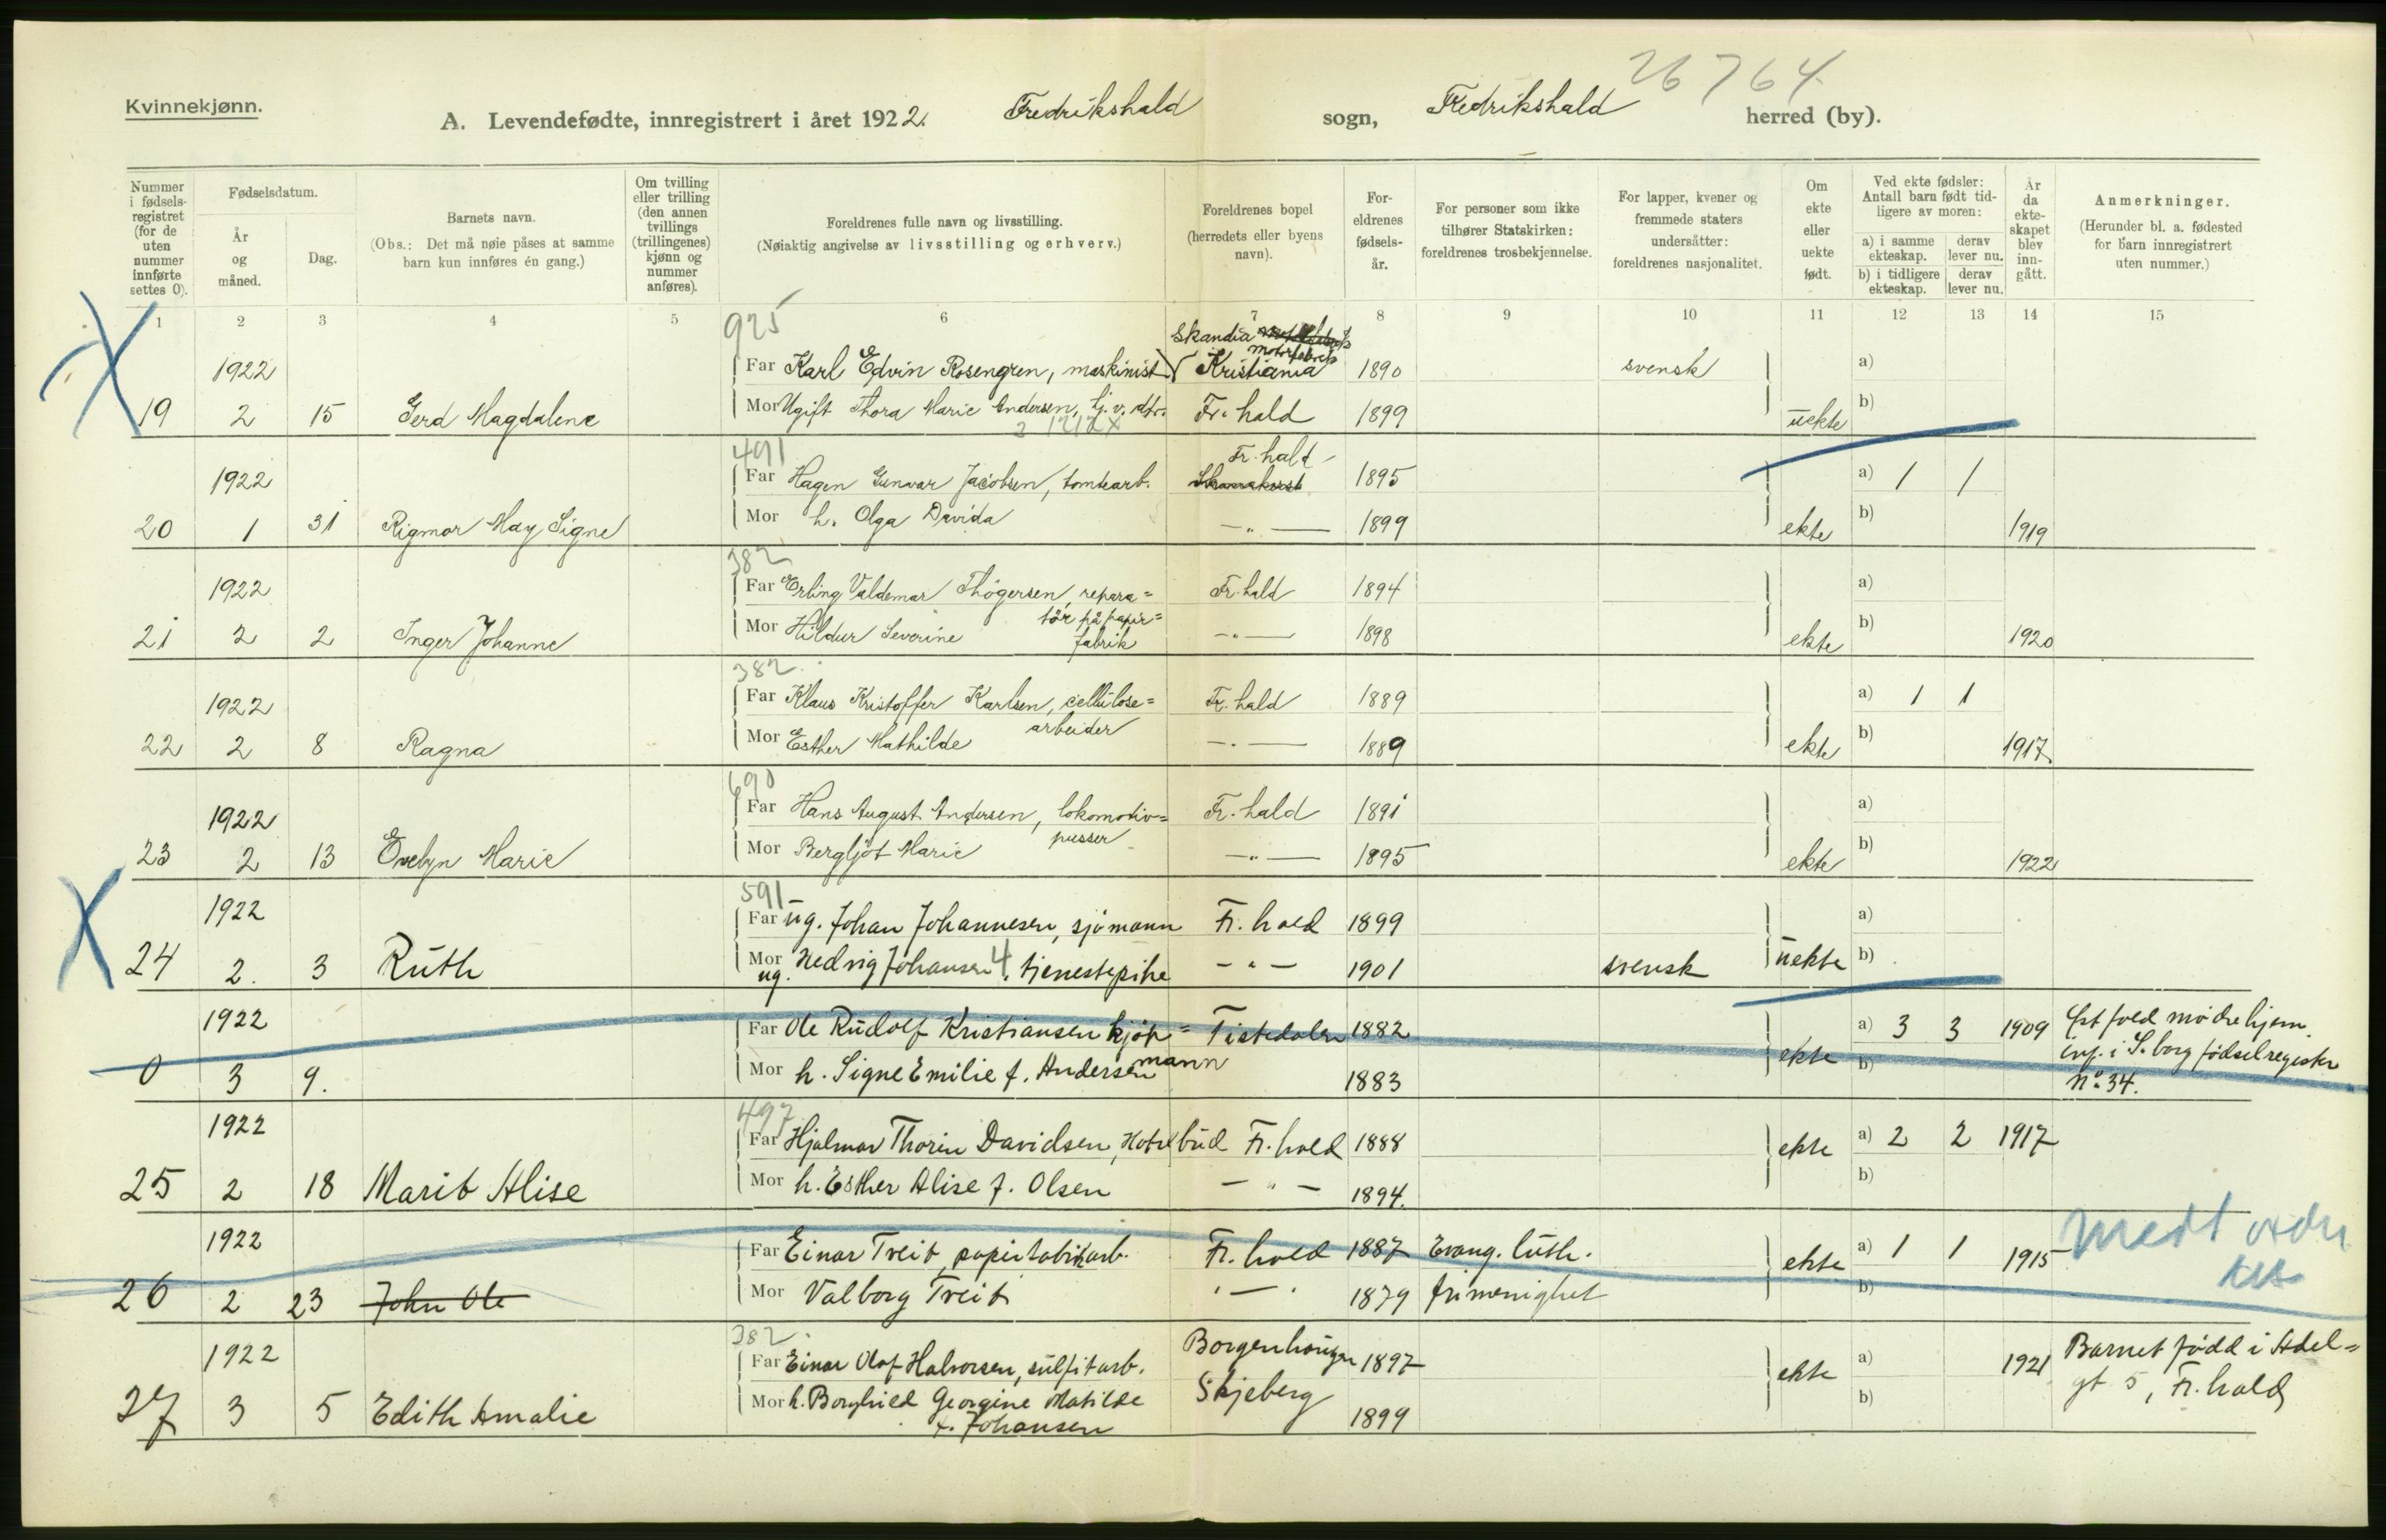 26764
Kvinnekjønn.
A. Levendefødte, innregistrert i året 1922. Fredrikshald sogn, Fredrikshald herred (by).
Nummer i fødselsregistret (for de uten nummer innførte settes 0).
Fødselsdatum.
År og måned.
Dag.
Barnets navn.
(Obs.: Det må nøie påses at samme barn kun innføres én gang.)
Om tvilling eller trilling (den annen tvillings (trillingenes) kjønn og nummer anføres).
Foreldrenes fulle navn og livsstilling.
(Nøiaktig angivelse av livsstilling og erhverv.)
Foreldrenes bopel (herredets eller byens navn).
Foreldrenes fødselsår.
For personer som ikke tilhører Statskirken: foreldrenes trosbekjennelse.
For lapper, kvener og fremmede staters undersåtter: foreldrenes nasjonalitet.
Om ekte eller uekte født.
Ved ekte fødsler: Antall barn født tidligere av moren:
a) i samme ekteskap. derav lever nu.
b) i tidligere ekteskap. derav lever nu.
År da ekteskapet blev inngått.
Anmerkninger.
(Herunder bl. a. fødested for barn innregistrert uten nummer.)
1 2 3 4 5 6 7 8 9 10 11 12 13 14 15
925
Skandia motorfabrik
1922 Far Karl Edvin Rosengren, maskinist Kristiania 1890 svensk a)
19 2 15 Gerd Magdalene Mor Ugift Thora Marie Andersen, tj. v. Fr.hald 1899 uekte b)
491
Fr. hald
1922 Far Hagen Gunvar Jacobsen, tomtearb. 1895 a) 1 1
20 1 31 Rigmor May Signe Mor h. Olga Davida —"— 1899 ekte b) 1919
382
1922 Far Erling Valdemar Thøgersen, repara= Fr. hald 1894 a)
tør på papir=
21 2 2 Inger Johanne Mor Hildur Severine fabrik —"— 1898 ekte b) 1920
382
1922 Far Klaus Kristoffer Karlsen, cellulose= Fr. hald 1889 a) 1 1
arbeider
22 2 8 Ragna Mor Esther Mathilde —"— 1889 ekte b) 1917
690
1922 Far Hans August Andersen, lokomotiv= Fr. hald 1891 a)
pusser
23 2 13 Evelyn Marie Mor Bergljot Marie —"— 1895 ekte b) 1922
591
1922 Far ug. Johan Johannesen, sjømann Fr. hald 1899 a)
24 2. 3 Ruth Mor ug. Hedvig Johansen 4, tjenestepike —"— 1901 svensk uekte b)
1922 Far Ole Rudolf Kristiansen kjøp= Tistedalen 1882 a) 3 3 1909 Østfold mødrehjem.
mann
0 3 9. Mor h. Signe Emilie f. Andersen 1883 ekte b) inf. i S.borg fødselregister
No. 34.
497
1922 Far Hjalmar Thorin Davidsen, Hotelbud Fr. hald 1888 ekte a) 2 2 1917
25 2 18 Marit Alise Mor h. Esther Alise f. Olsen —"— 1894. b)
1922 Far Einar Treit, papirfabrikarb. Fr. hald 1887 Evang. luth. ekte a) 1 1 1915
26 2 23 John Ole Mor Valborg Treit —"— 1879 frimenighet b)
382
1922 Far Einar Olaf Halvorsen, sulfitarb. Borgenhaugen 1897 ekte a) 1921 Barnet född i Adel=
27 3 5 Edith Amalie Mor h. Borghild Georgine Matilde Skjeberg 1899 b) gt 5, Fr. hald
f. Johansen